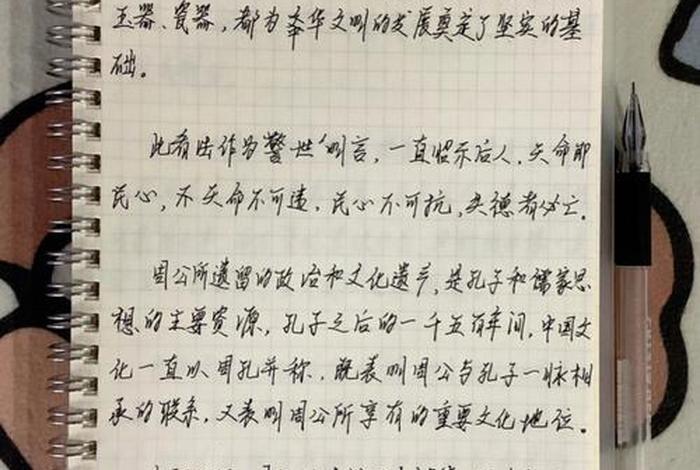 玉器、瓷器，都为华文明的发展奠定了坚实的基
础。
此看法作为警世明言，一直昭示后人，天命即
民心，不天命不可违，民心不可抗，失德者必亡。
周公所遗留的政治和文化遗产，是孔子和儒家思
想的主要资源，孔子之后的一千五百年间，中国文
化一直以周孔并称，既表明周公与孔子一脉相
承的联系，又表明周公所享有的重要文化地位。